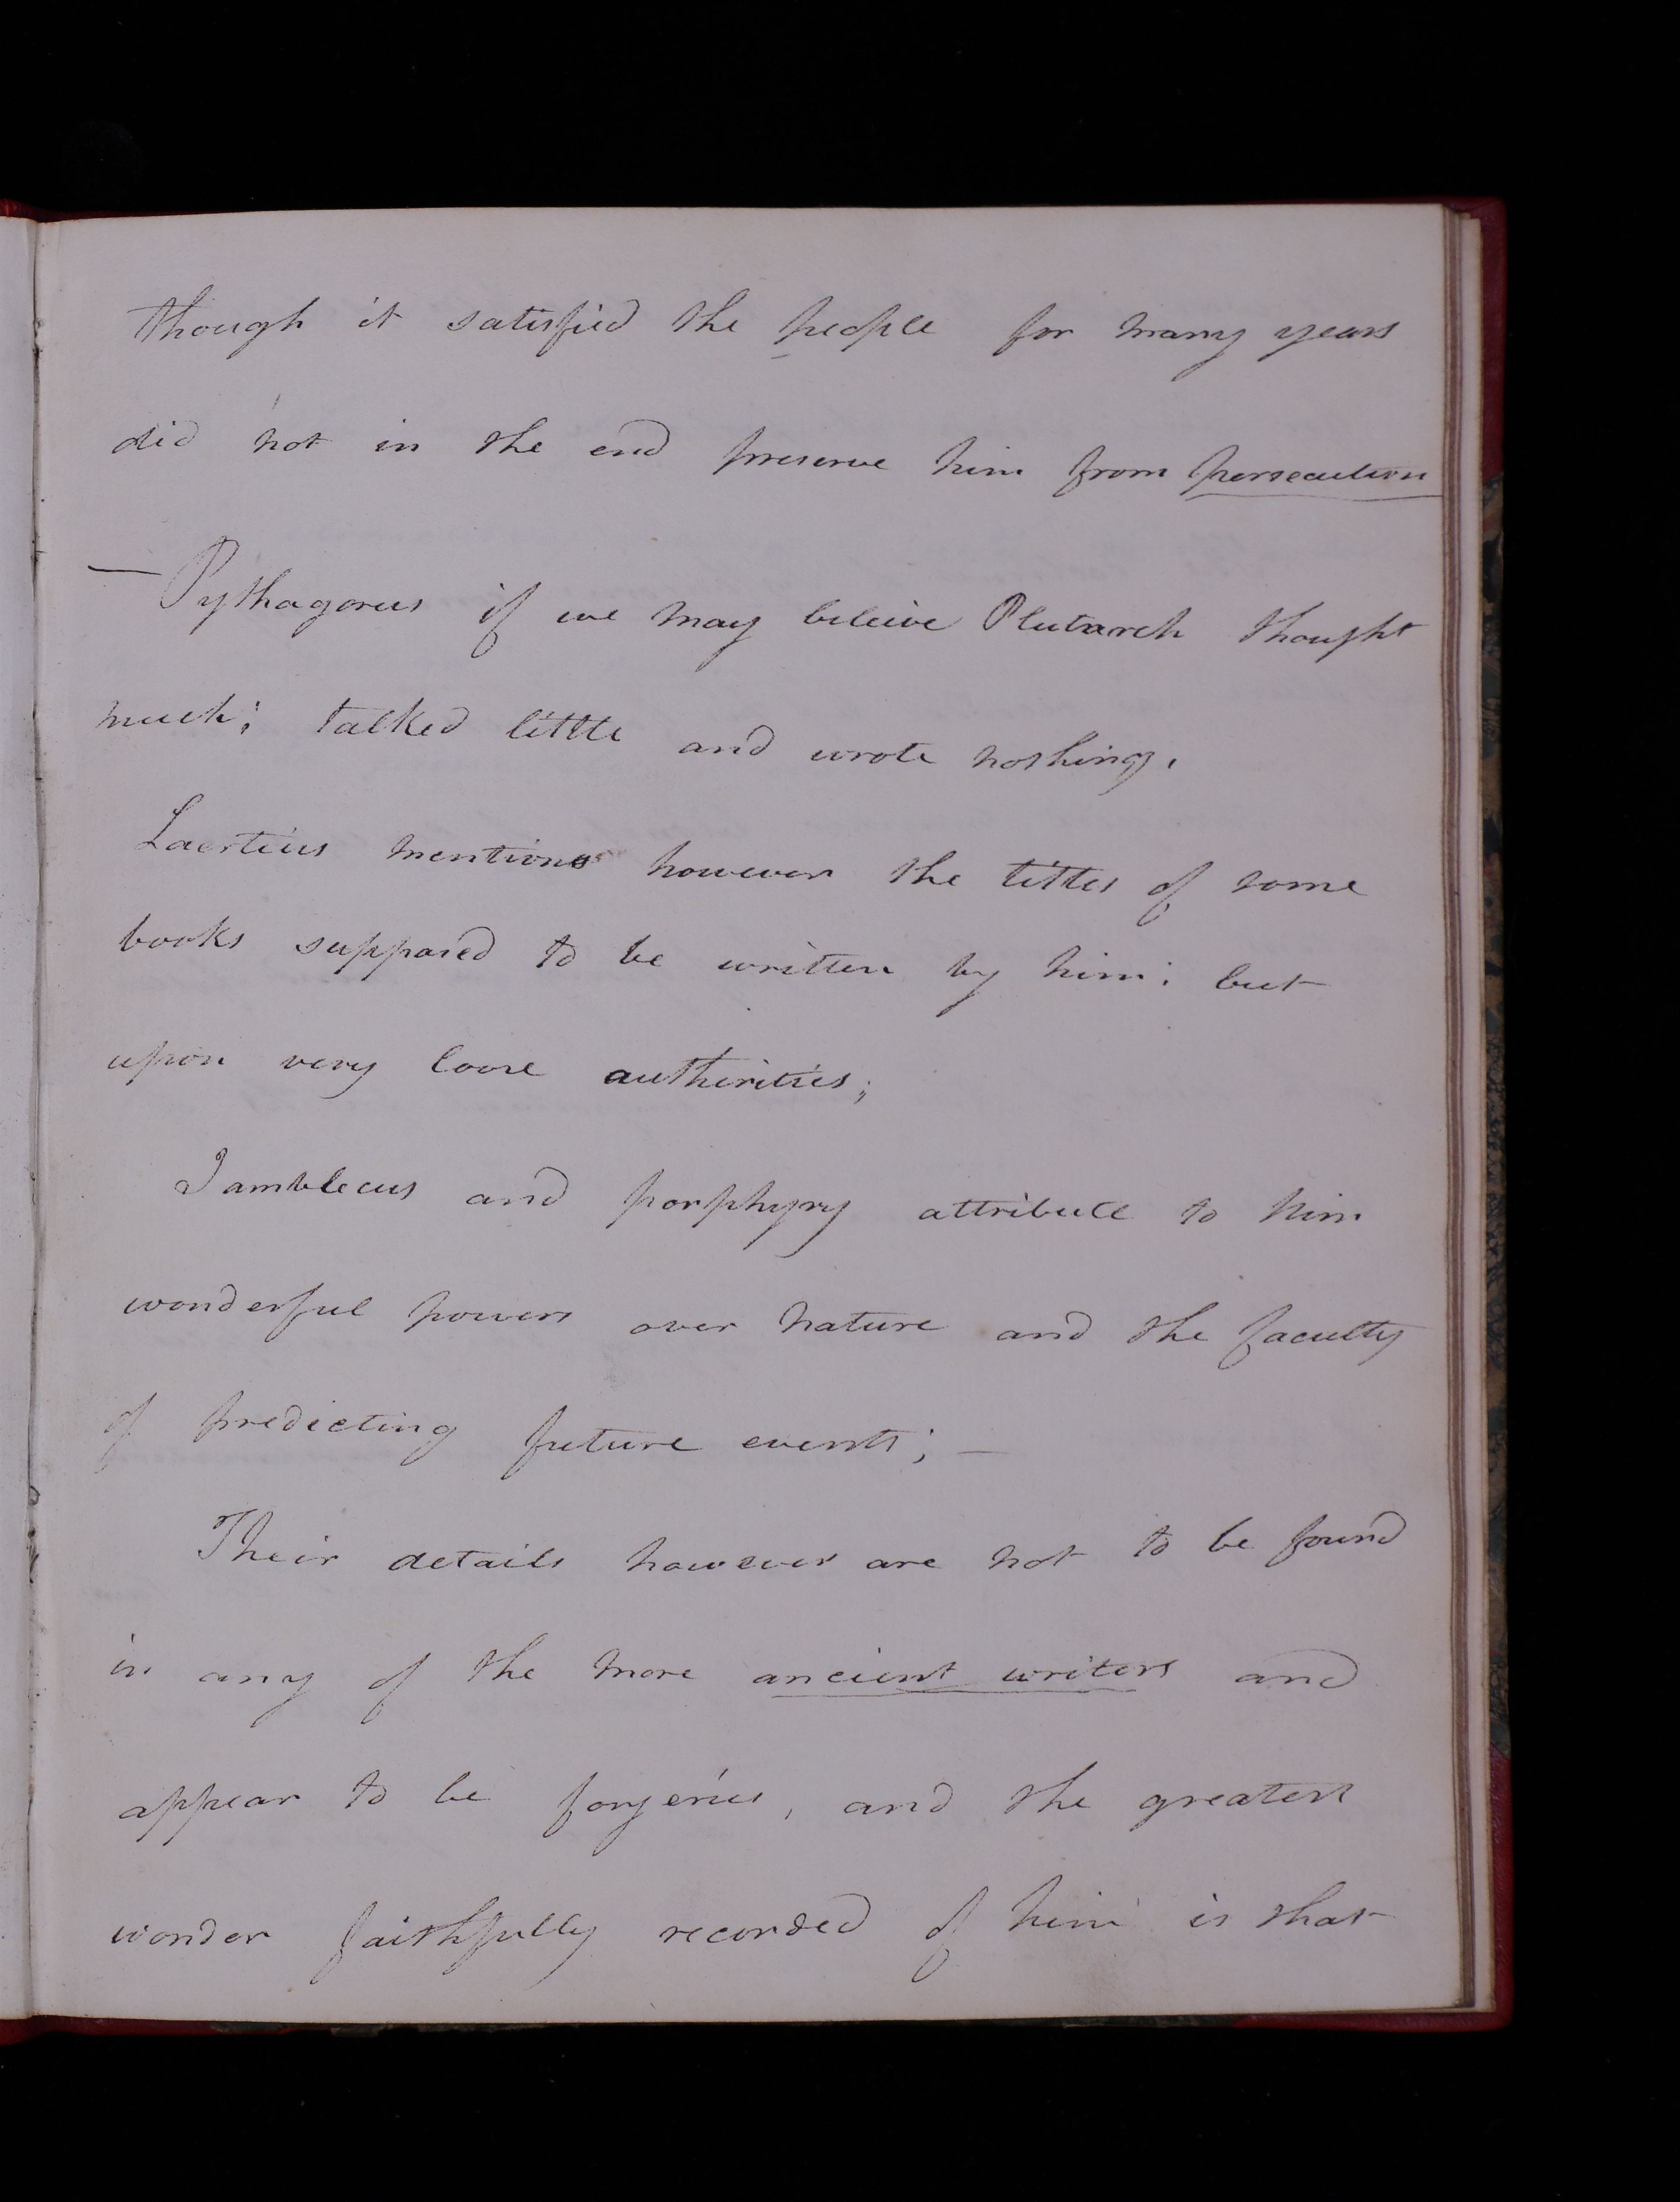 though it satisfied the people for many years
did not in the end preserve him from persecution
— Pythagorus if we may beleive Plutarch thought
much; talked little and wrote nothing.
Laertius mentions however the tittes of some
books supposed to be written by him; but
upon very loose authirities;
Iamblecus and porphyry attribute to him
wonderful powers over nature and the faculty
of predicting future events; —
Their details however are not to be found
in any of the more ancient writers and
appear to be forgeries, and the greatest
wonder faithfully recorded of him is that